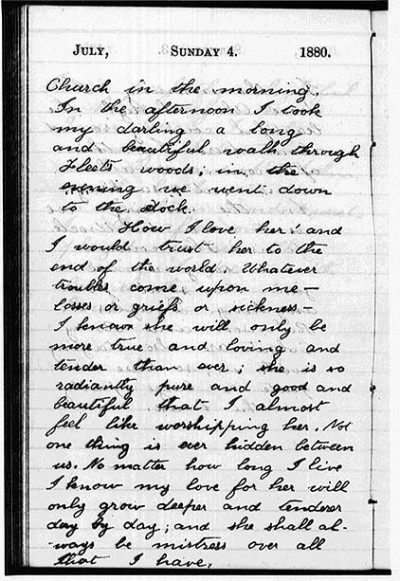 JULY, SUNDAY 4. 1880.
Church in the morning.
In the afternoon I took
my darling a long
and beautiful walk through
Fleets woods; in the
evening we went down
to the dock.
How I love her! and
I would trust her to the
end of the world. Whatever
troubles come upon me—
losses or griefs or sickness—
I know she will only be
more true and loving and
tender than ever; she is so
radiantly pure and good and
beautiful that I almost
feel like worshipping her. Not
one thing is ever hidden between
us. No matter how long I live
I know my love for her will
only grow deeper and tenderer
day by day; and she shall al-
ways be mistress over all
that I have.